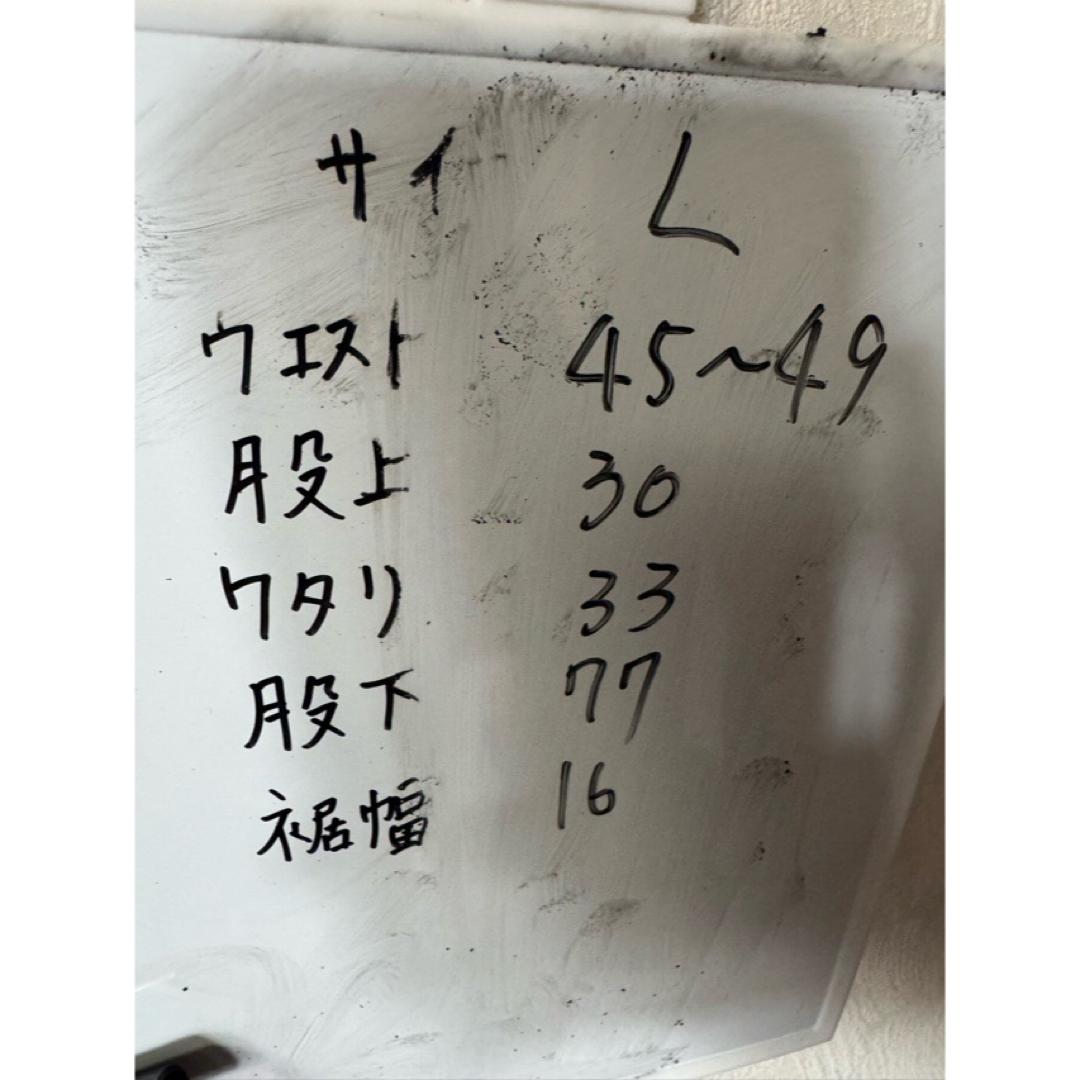 サイ L
ウエスト 45~49
股上 30
ワタリ 33
股下 77
裾幅 16